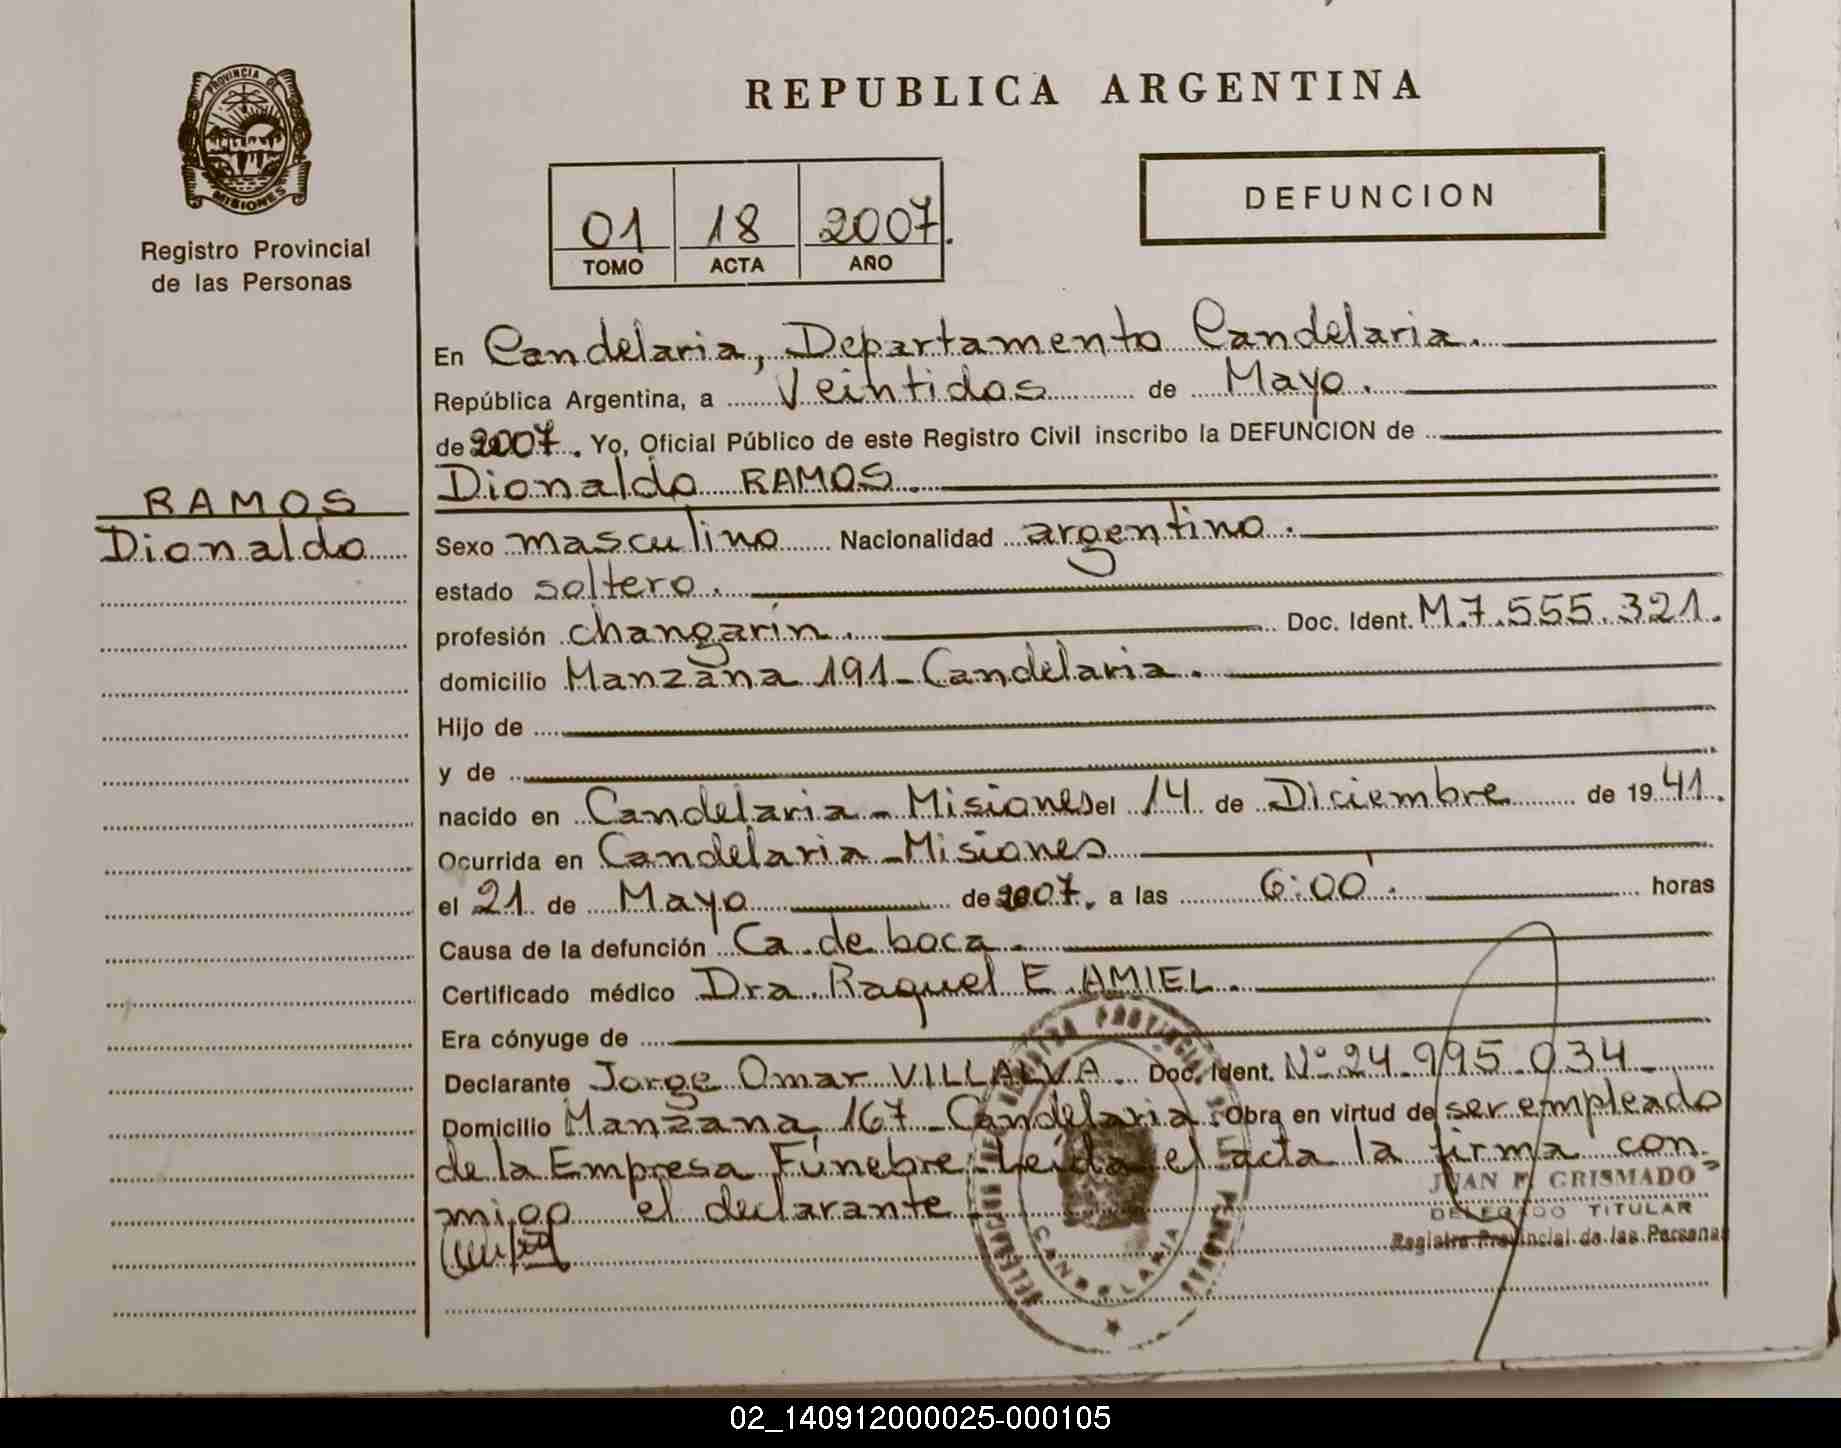 PROVINCIA DE
MISIONES
Registro Provincial
de las Personas
RAMOS
Dionaldo
REPUBLICA ARGENTINA
01 18 2007.
TOMO ACTA AÑO
DEFUNCION
En Candelaria, Departamento Candelaria.
República Argentina, a Veintidos de Mayo.
de 2007. Yo, Oficial Público de este Registro Civil inscribo la DEFUNCION de
Dionaldo RAMOS.
Sexo masculino Nacionalidad argentino.
estado soltero.
profesión changarín. Doc. Ident. M.7.555.321.
domicilio Manzana 191-Candelaria.
Hijo de
y de
nacido en Candelaria-Misiones el 14 de Diciembre de 1941.
Ocurrida en Candelaria-Misiones
el 21 de Mayo de 2007. a las 6:00'. horas
Causa de la defunción Ca. de boca.
Certificado médico Dra. Raquel E. AMIEL.
Era cónyuge de
Declarante Jorge Omar VILLALVA. Doc. Ident. Nº 24.995.034
Domicilio Manzana 167-Candelaria. Obra en virtud de ser empleado
de la Empresa Fúnebre. Leída el acta la firma con-
migo el declarante
JUAN F. GRISMADO
DELEGADO TITULAR
Registro Provincial de las Personas
CANDELARIA
02_140912000025-000105